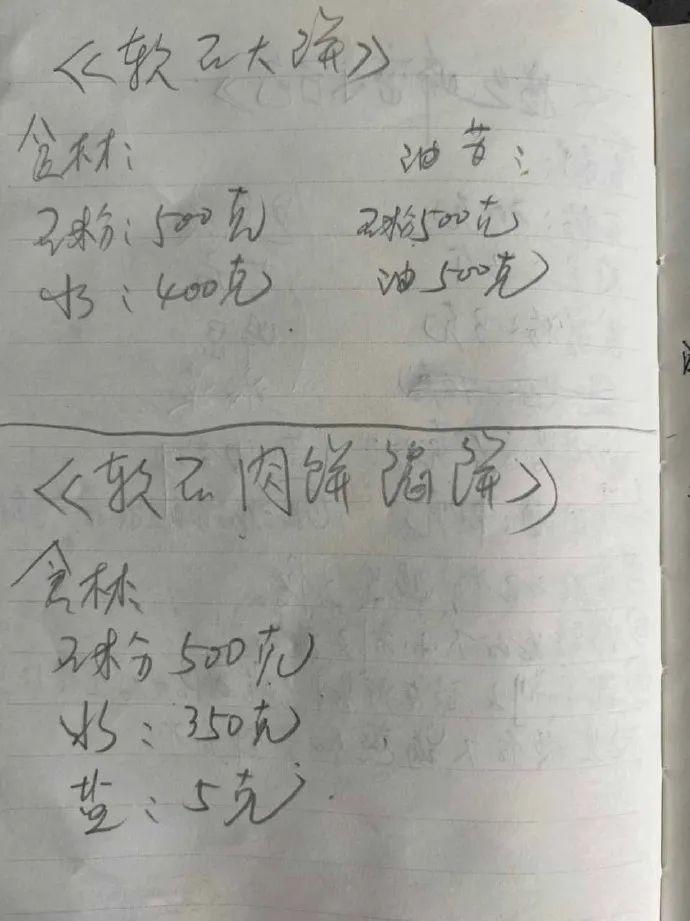 《软面大饼》
食材：
面粉：500克
水：400克
油
面粉500克
油500克
《软面肉饼 馅饼》
食材
面粉500克
水：350克
盐：5克